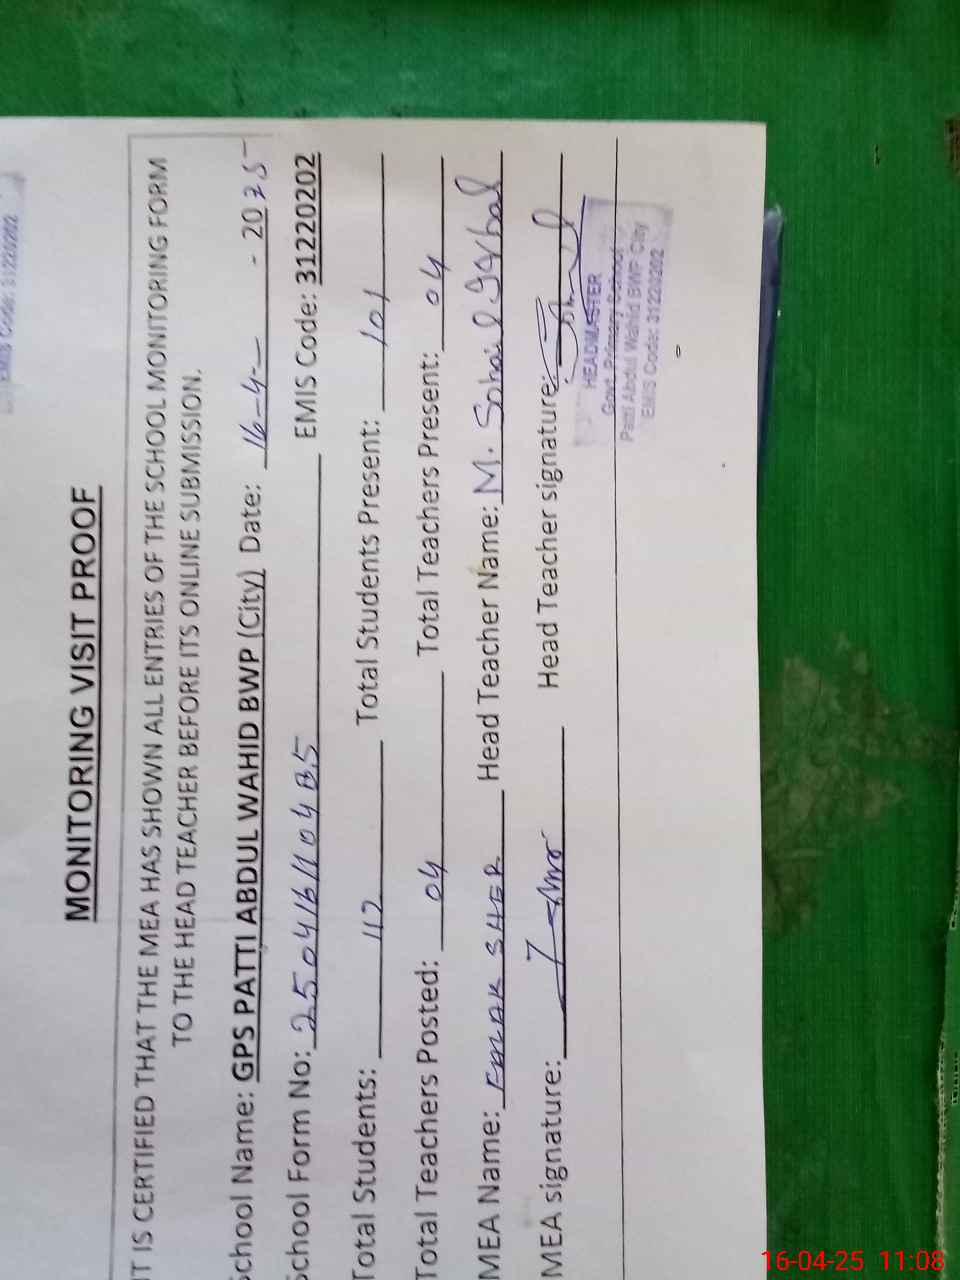 EMIS Code: 31220202
MONITORING VISIT PROOF
IT IS CERTIFIED THAT THE MEA HAS SHOWN ALL ENTRIES OF THE SCHOOL MONITORING FORM
TO THE HEAD TEACHER BEFORE ITS ONLINE SUBMISSION.
School Name: GPS PATTI ABDUL WAHID BWP (City) Date: 16-4- - 2025
School Form No: 250416110485 EMIS Code: 31220202
Total Students: 112 Total Students Present: 101
Total Teachers Posted: 04 Total Teachers Present: 04
MEA Name: SHER Head Teacher Name: M. Sohail Iqbal
MEA signature: Head Teacher signature:
HEADMASTER
Govt. Primary School
Patti Abdul Wahid BWP City
EMIS Code: 31220202
16-04-25 11:08